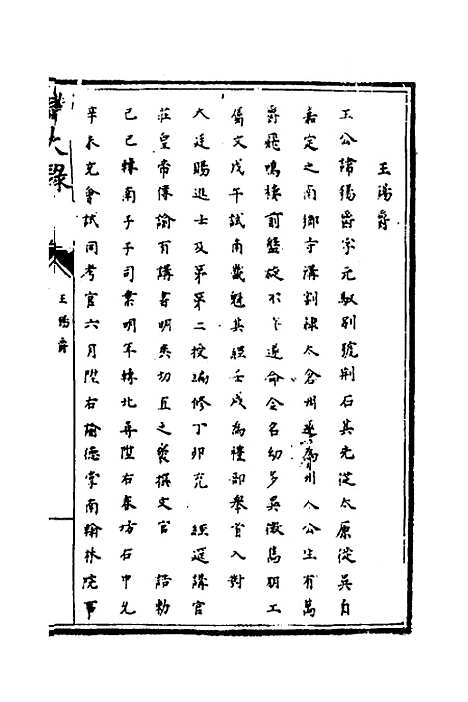 王錫爵
王公諱錫爵字元馭別號荊石其先從太原從吳自
嘉定之南鄉守溝割隸太倉州遂為州人公生有萬
爵飛鳴棲前盤旋不下遂命今名幼多異徵為羽工
屬文戊午試南畿魁其經壬戌為禮部舉首入對
大廷賜進士及第第二授編修丁卯充 經筵講官
莊皇帝傳諭有講書明悉切直之褒撰文官 誥勅
己巳轉南子子司業明年轉北再陞右春坊右中允
辛未充會試同考官六月陞右諭德掌南翰林院事
大錄
王錫爵